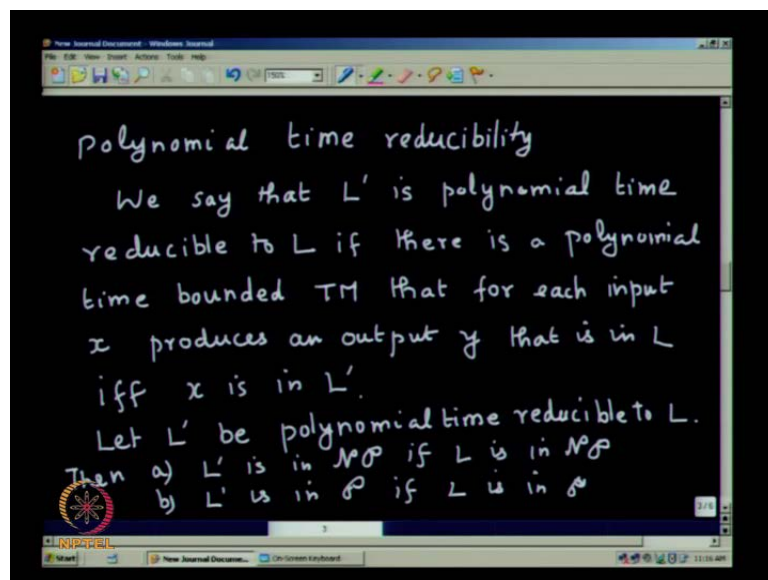 New Journal Document - Windows Journal
File Edit View Insert Actions Tools Help
150%
Polynomial time reducibility
We say that L' is polynomial time
reducible to L if there is a polynomial
time bounded TM that for each input
x produces an output y that is in L
iff x is in L'.
Let L' be polynomial time reducible to L.
Then a) L' is in NP if L is in NP
b) L' is in P if L is in P
3/6
3
NPTEL
Start New Journal Docume... On-Screen Keyboard 11:16 AM